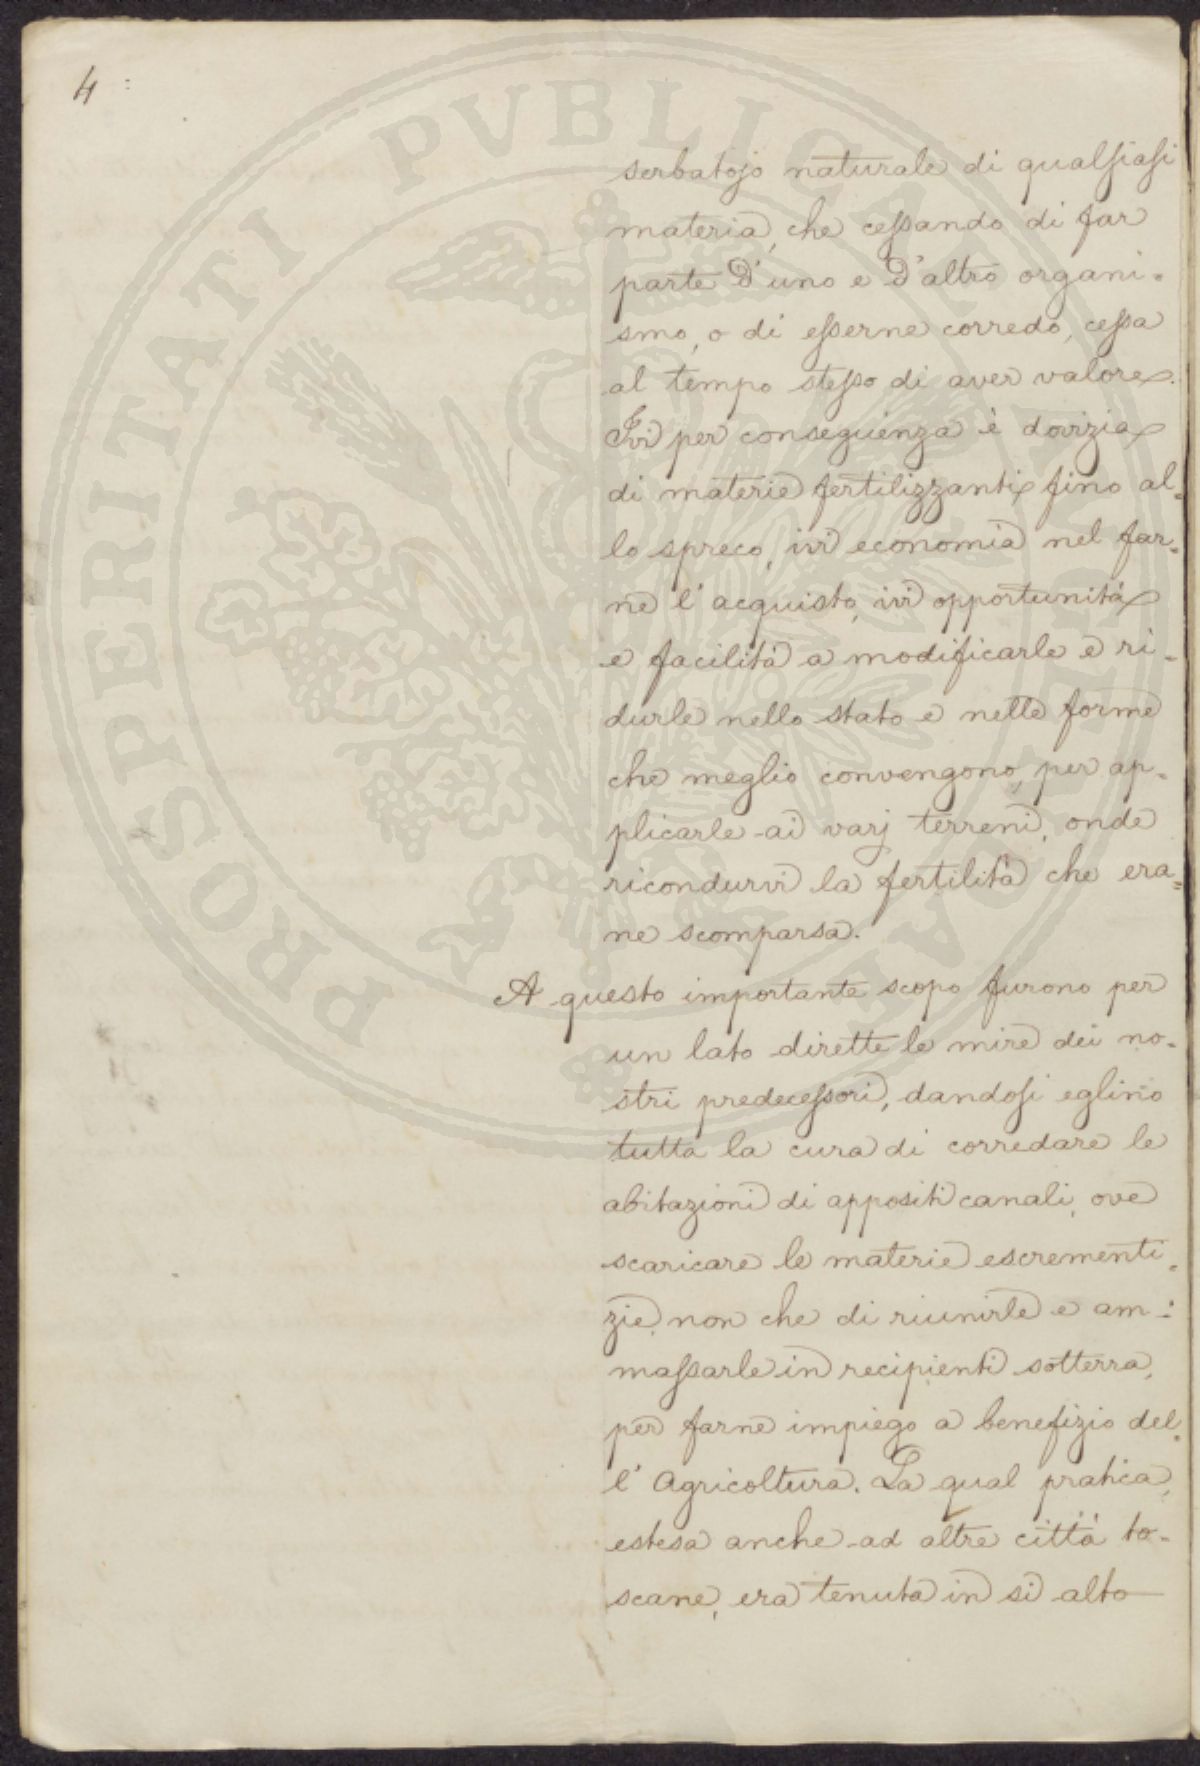 4
serbatojo naturale di qualsiasi
materia, che cessando di far
parte d'uno e d'altro organi-
smo, o di esserne corredo, cessa
al tempo stesso di aver valore.
Ivi per conseguenza è dovizia
di materie fertilizzanti fino al-
lo spreco, ivi economia nel far-
ne l'acquisto, ivi opportunità
e facilità a modificarle e ri-
durle nello stato e nelle forme
che meglio convengono, per ap-
plicarle ai varj terreni, onde
ricondurvi la fertilità che era-
ne scomparsa.
A questo importante scopo furono per
un lato dirette le mire dei no-
stri predecessori, dandosi eglino
tutta la cura di corredare le
abitazioni di appositi canali, ove
scaricare le materie escrementi-
zie, non che di riunirle e am-
massarle in recipienti sotterra,
per farne impiego a benefizio del-
l'Agricoltura. La qual pratica,
estesa anche ad altre città to-
scane, era tenuta in sì alto
PROSPERITATI PVBLICAE AVGENDAE